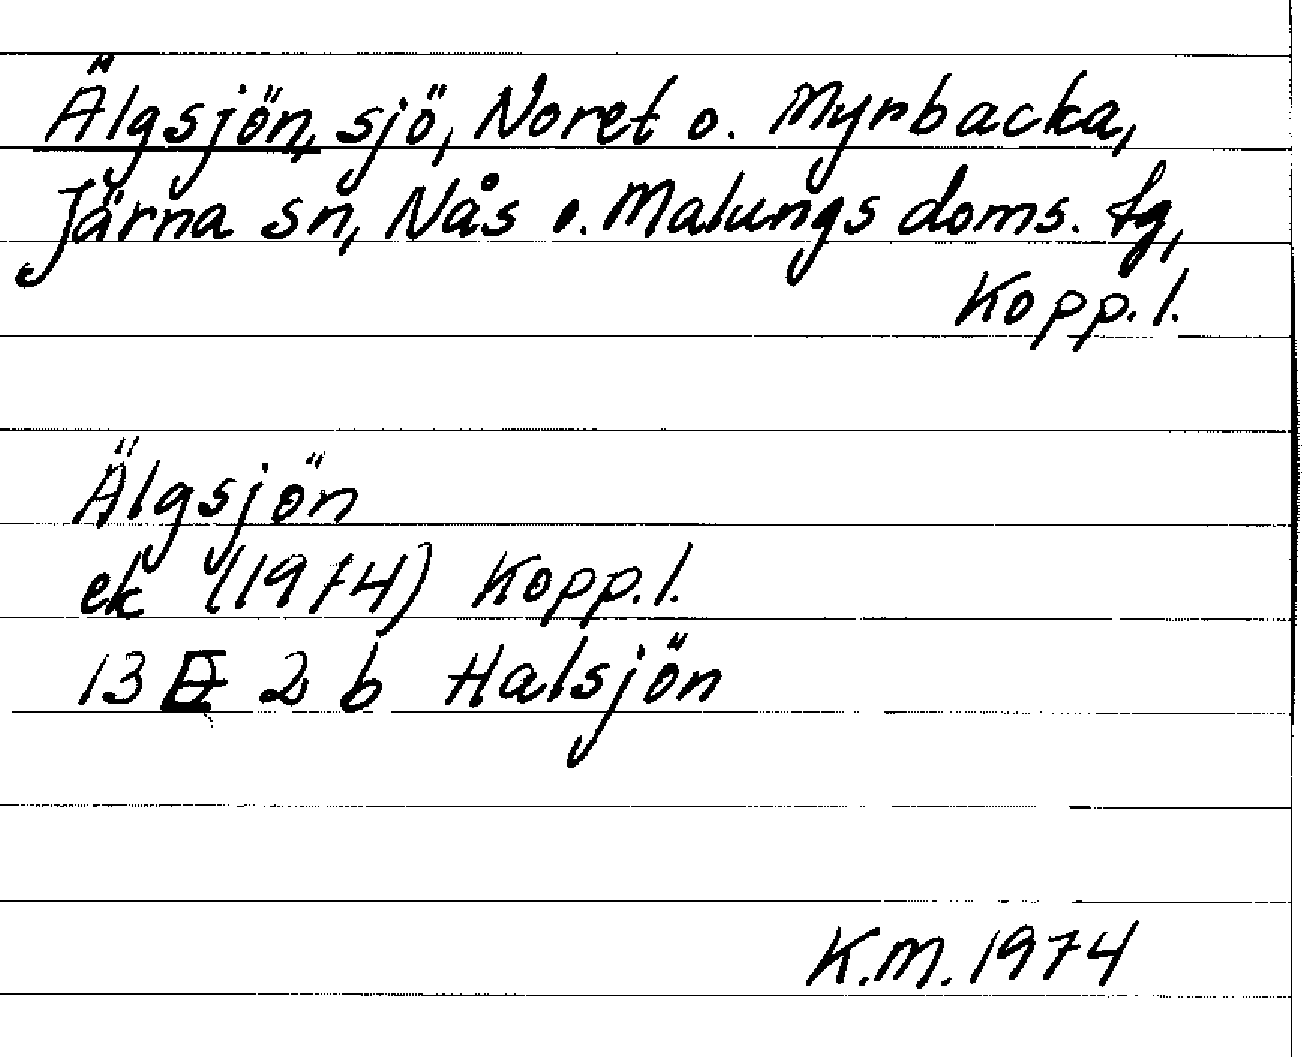 Älgsjön, sjö, Noret o. Myrbacka,
Järna sn, Nås o. Malungs doms. tg,
Kopp.l.
Älgsjön
ek (1974) Kopp.l.
13 E 2 b Halsjön
K.M. 1974